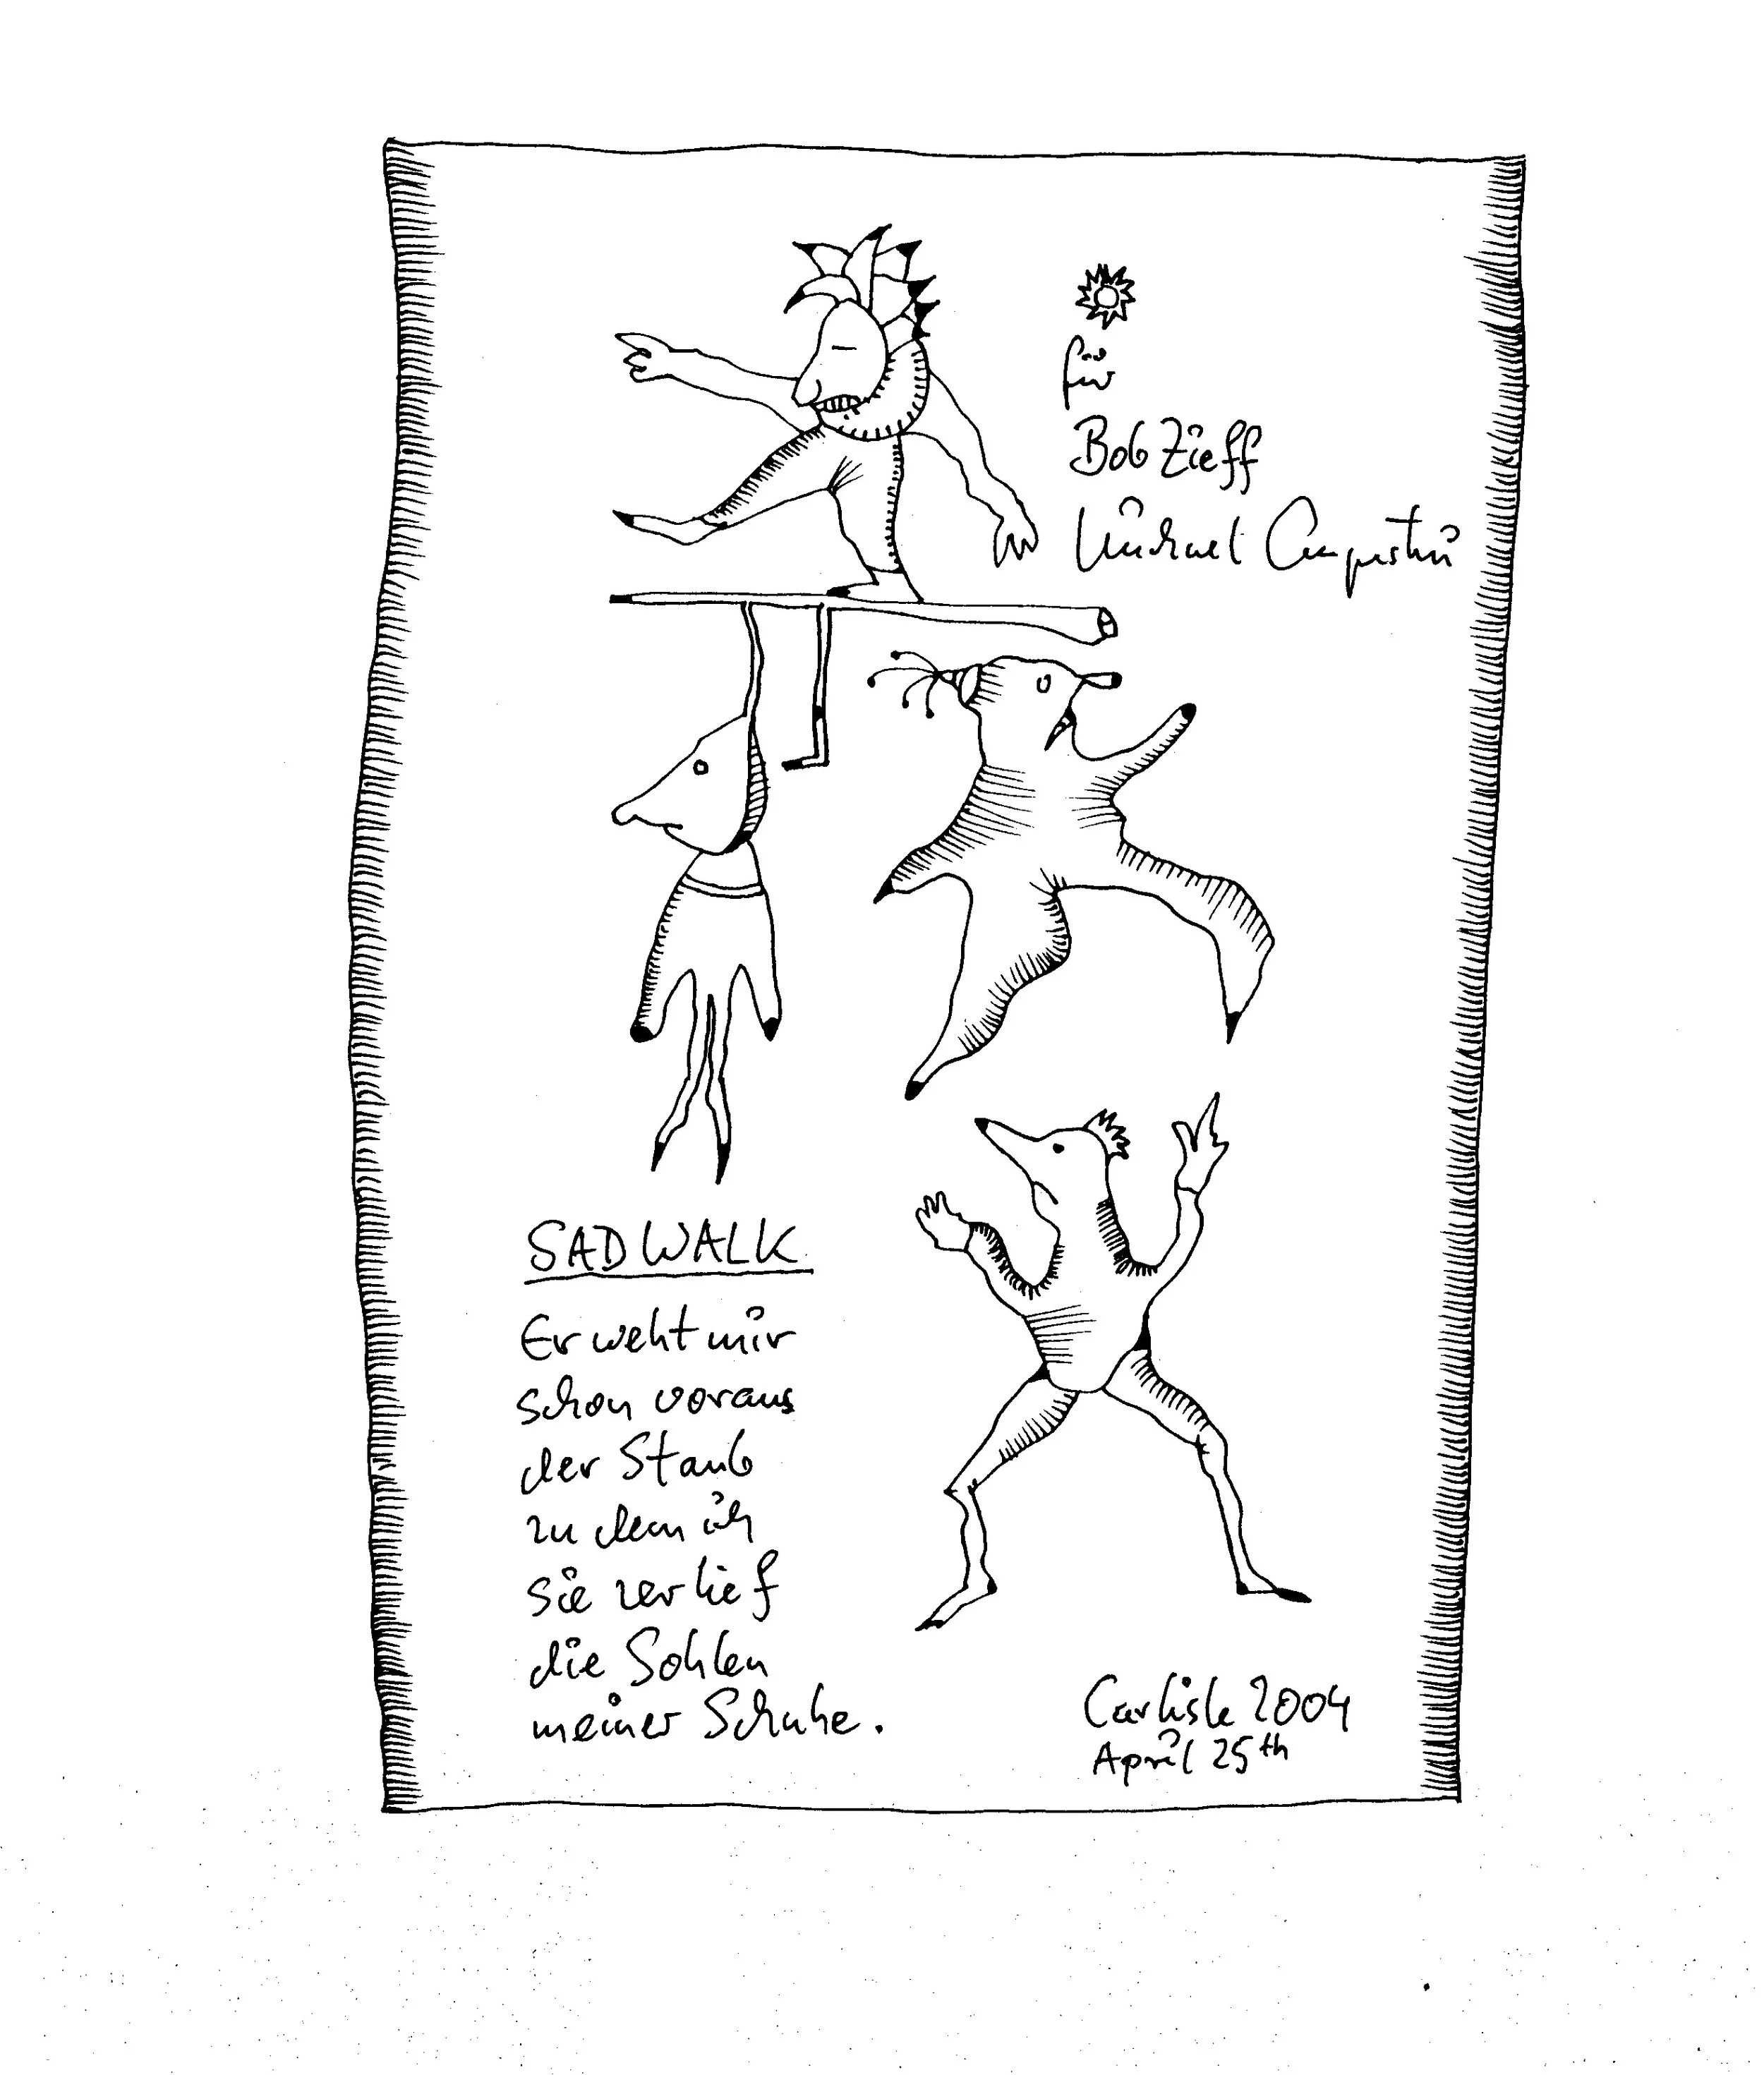 für
Bob Zieff
Michael Augustin
SAD WALK
Er weht mir
schon voraus
der Staub
zu dem ich
sie zerlief
die Sohlen
meiner Schuhe.
Carlisle 2004
April 25th